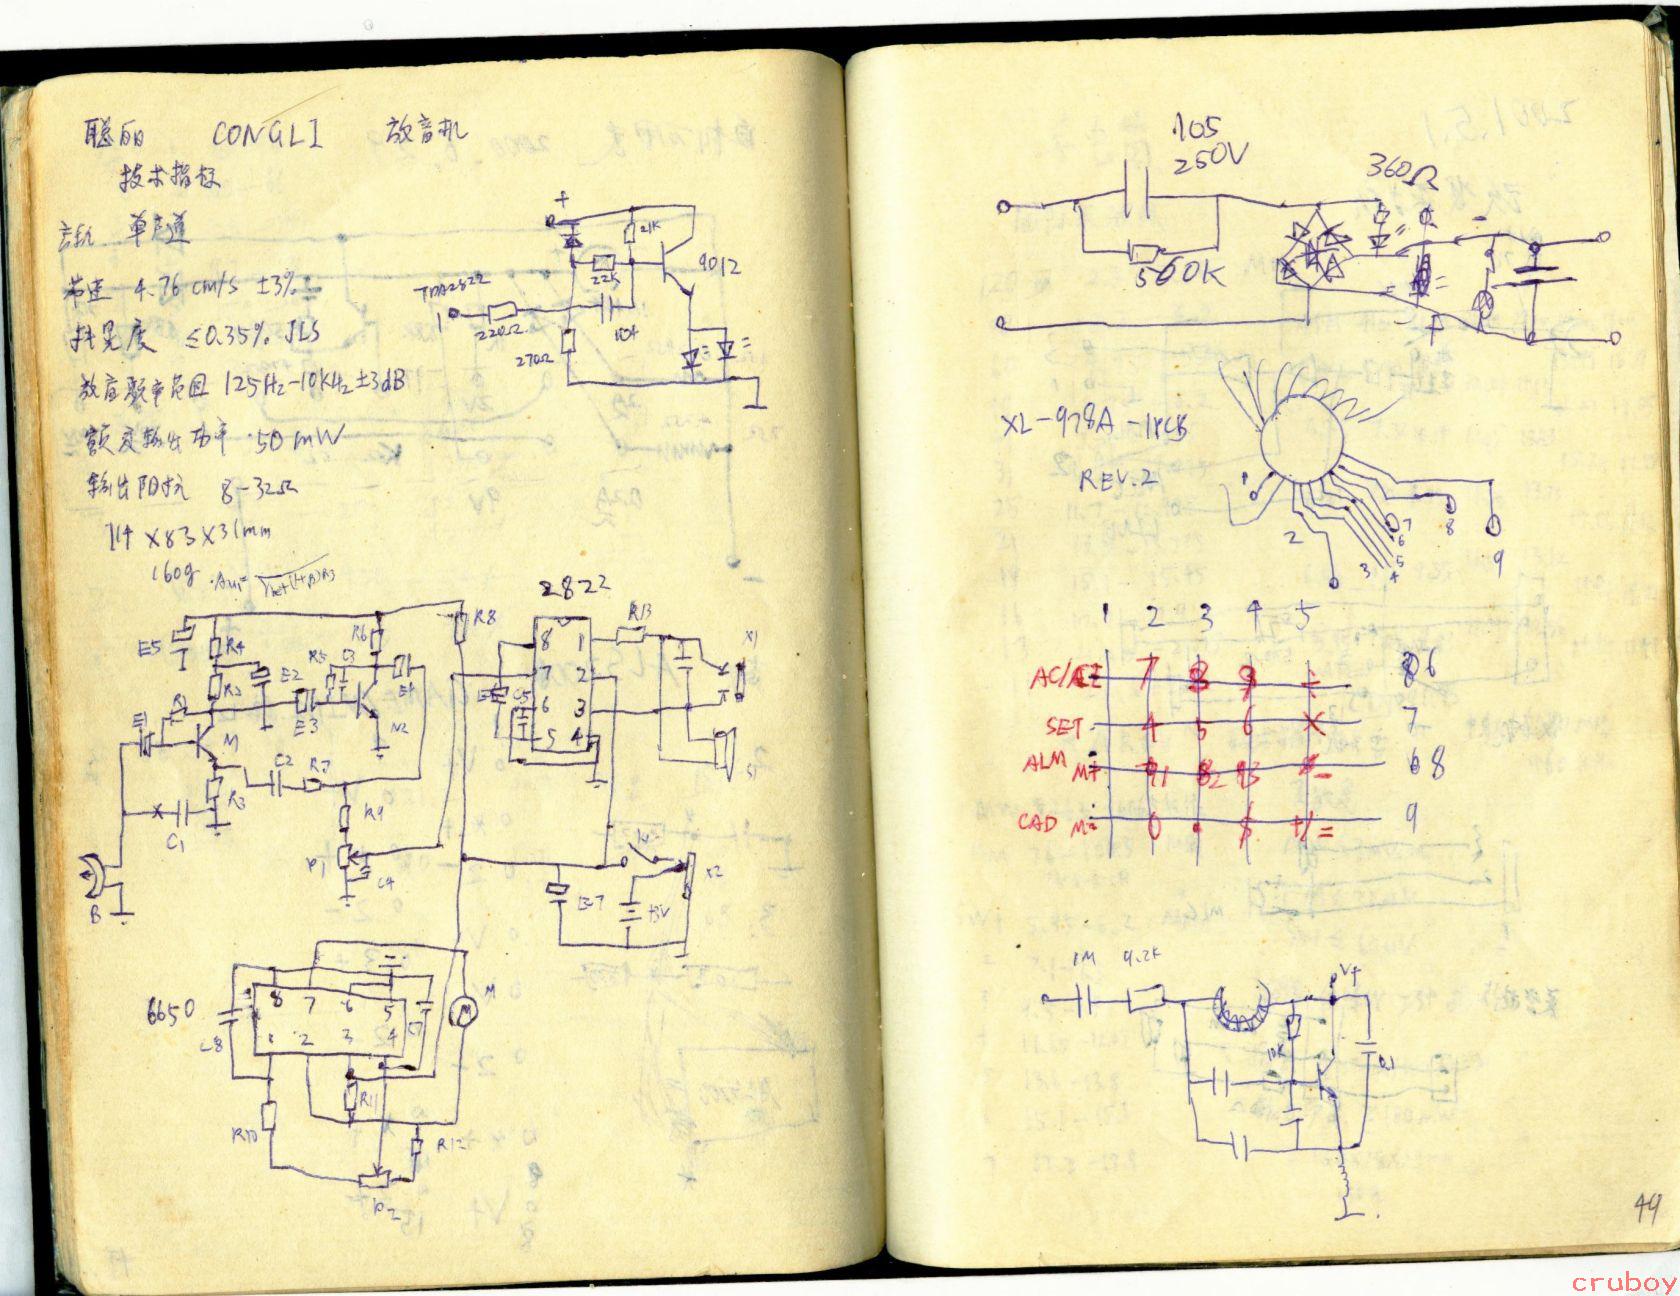 聪丽 CONGLI 放音机
技术指标
主机 单声道
带速 4.76 cm/s ±3%
抖晃度 ≤0.35% JLS
放音频率范围 125Hz-10KHz ±3dB
额定输出功率 50mW
输出阻抗 8-32Ω
114 x83 x31mm
160g
+
21K
22K
9012
TDA2822
1
220Ω
104
270Ω
2822
E5
R4
R6
R8
R13
X1
R5
C3
E4
R2
E2
E3
8 1
7 2
6 3
5 4
C5
E1
N2
C2
R7
R3
R9
C1
P1
C4
B
S1
K
X2
E7
+3V
6650
8 7 6 5
1 2 3 4
C8
C7
M
M
R10
R11
R12
P2
105
250V
360Ω
500K
-
+
XL-978A-1PCB
REV.2
1
2
3
4
5
6
7
8
9
1 2 3 4 5
AC/CE 7 8 9 ÷ 6
SET 4 5 6 × 7
ALM M+ 1 2 3 - 8
CAD 0 . +/= 9
1M
V+
10K
R1
49
cruboy